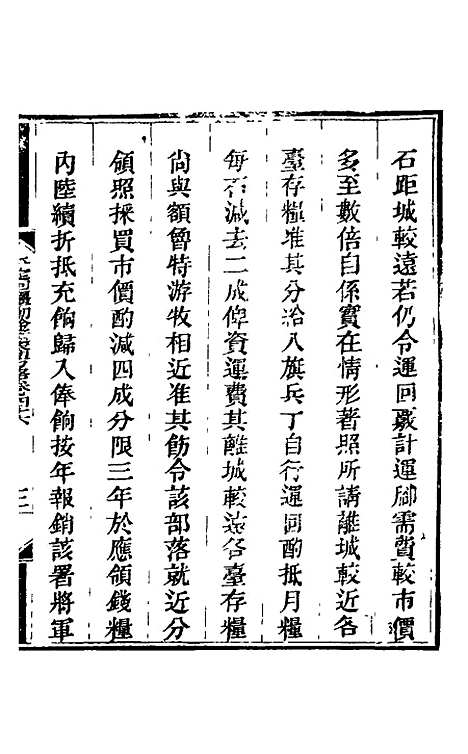 石距城較遠若仍令運回覈計運腳需費較市價
多至數倍自係實在情形著照所請離城較近各
臺存糧准其分給八旗兵丁自行運回酌抵月糧
每石減去二成俾資運費其離城較遠各臺存糧
尚與額魯特游牧相近准其飭令該部落就近分
領照採買市價酌減四成分限三年於應領錢糧
內陸續折抵充餉歸入俸餉按年報銷該署將軍